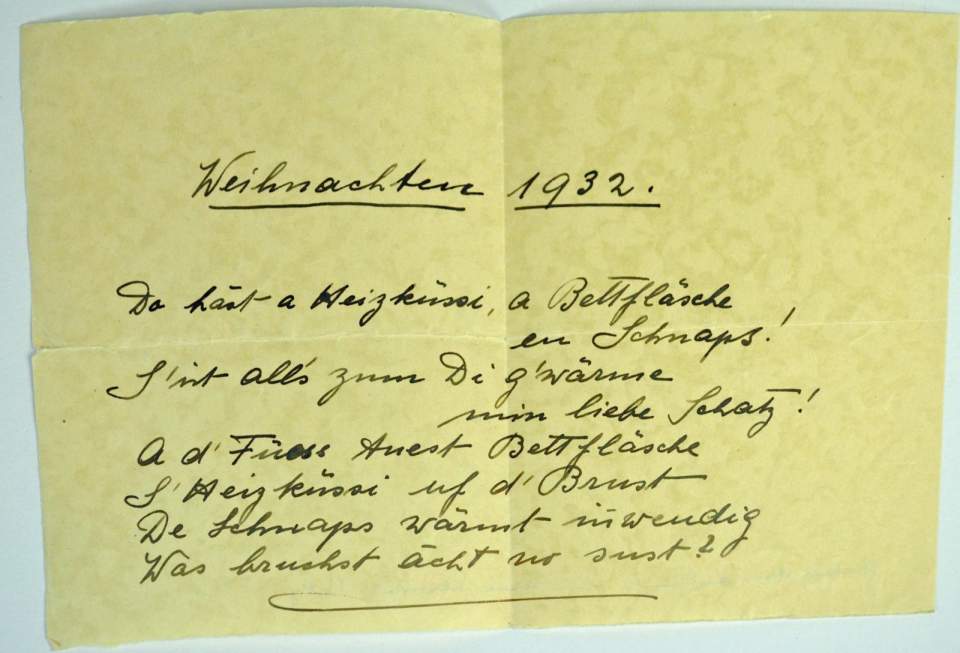 Weihnachten 1932.
Do häst a Heizküssi, a Bettfläsche
en Schnaps!
S'ist all's zum Di g'wärme
min liebe Schatz!
A d' Füess tuest Bettfläsche
S' Heizküssi uf d' Brust
De Schnaps wärmt inwendig
Was bruchst ächt no sust?